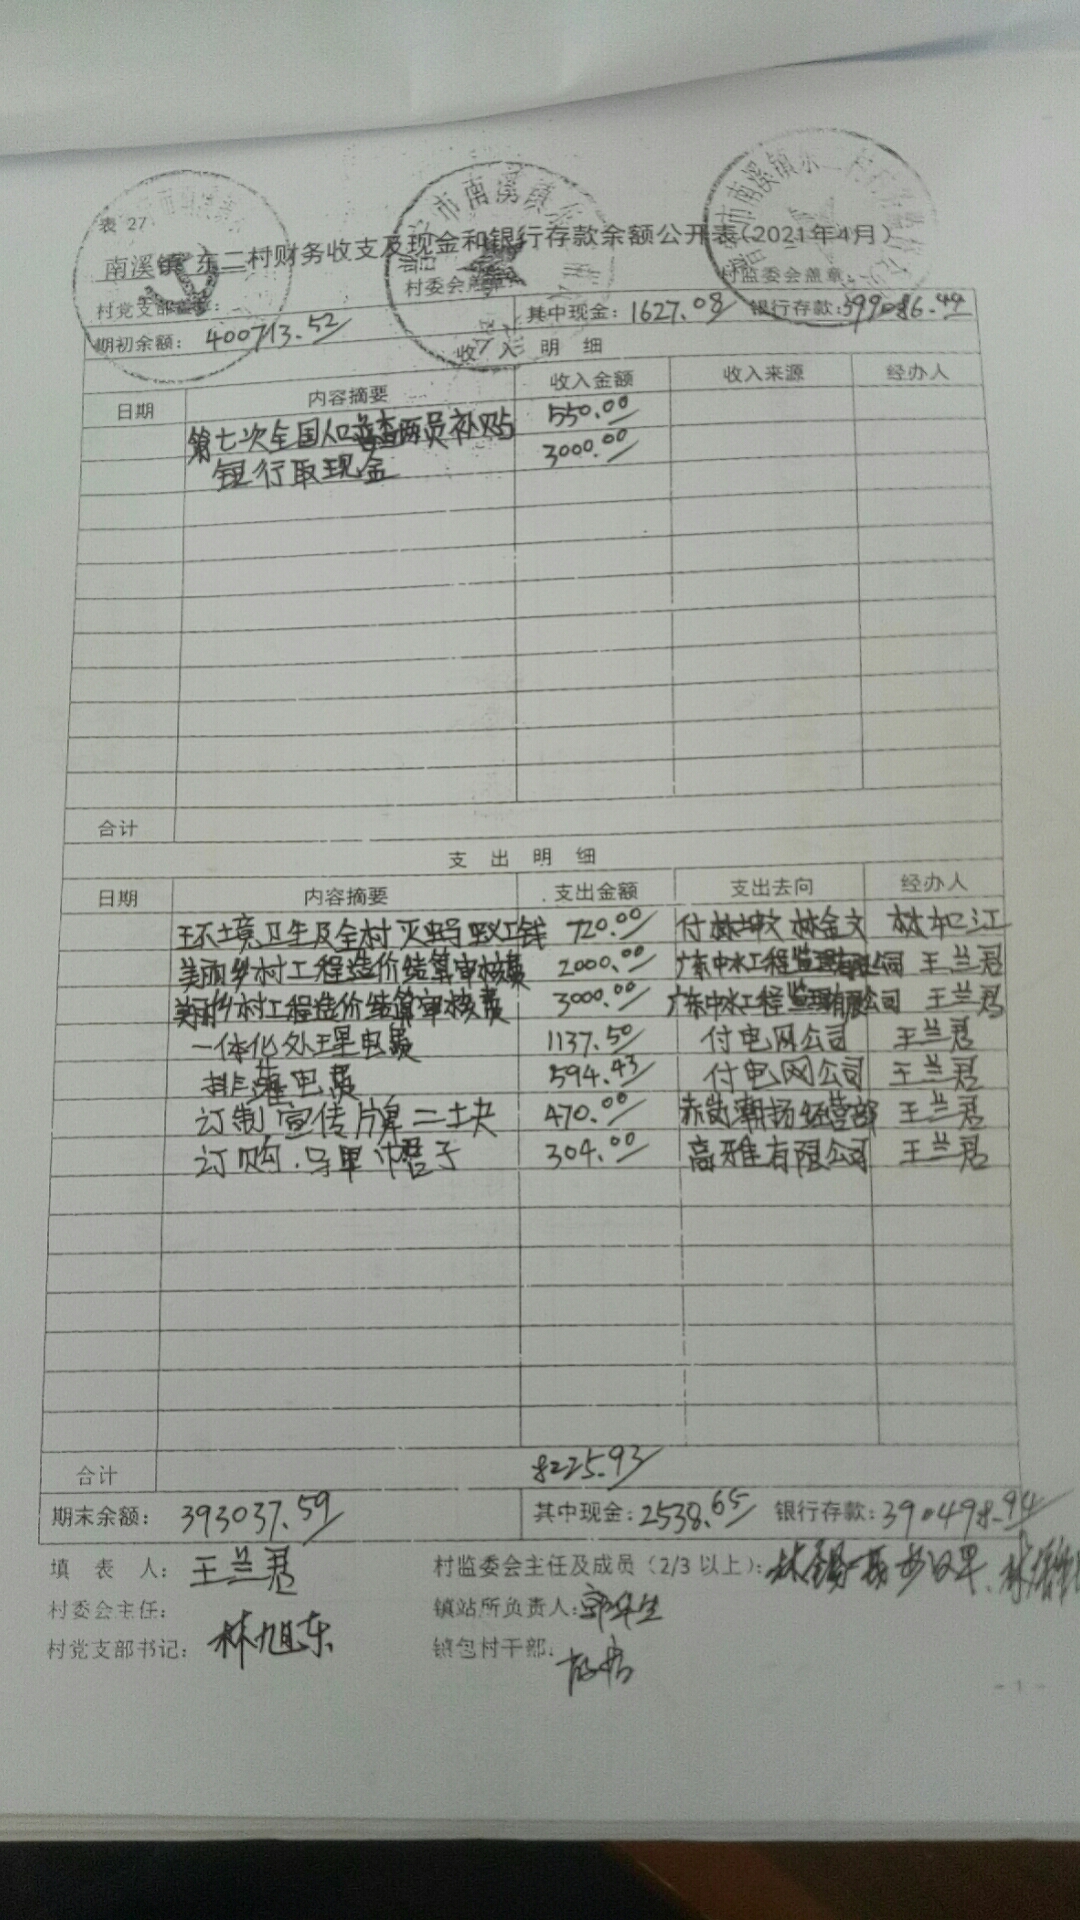 表 27
南溪镇 东二村财务收支及现金和银行存款余额公开表(2021年4月)
村党支部 村委会盖章 村监委会盖章:
期初余额: 400713.52 其中现金: 1627.08 银行存款: 399086.44
收 入 明 细
日期 内容摘要 收入金额 收入来源 经办人
第七次全国人口普查两员补贴 550.00
银行取现金 3000.00
合计
支 出 明 细
日期 内容摘要 支出金额 支出去向 经办人
环境卫生及全村灭蚂蚁工钱 720.00 付林坤文 林金文 林和江
美丽乡村工程造价结算审核费 2000.00 广东中水工程监理有限公司 王兰君
美丽乡村工程造价结算审核费 3000.00 广东中水工程监理有限公司 王兰君
一体化处理电费 1137.50 付电网公司 王兰君
排灌电费 594.43 付电网公司 王兰君
订制宣传牌二块 470.00 赤岗潮扬经营部 王兰君
订购 304.00 高雅有限公司 王兰君
合计 8225.93
期末余额: 393037.59 其中现金: 2538.65 银行存款: 390498.94
填 表 人: 王兰君 村监委会主任及成员(2/3 以上):
村委会主任: 镇站所负责人:
村党支部书记: 林旭东 镇包村干部:
- 1 -